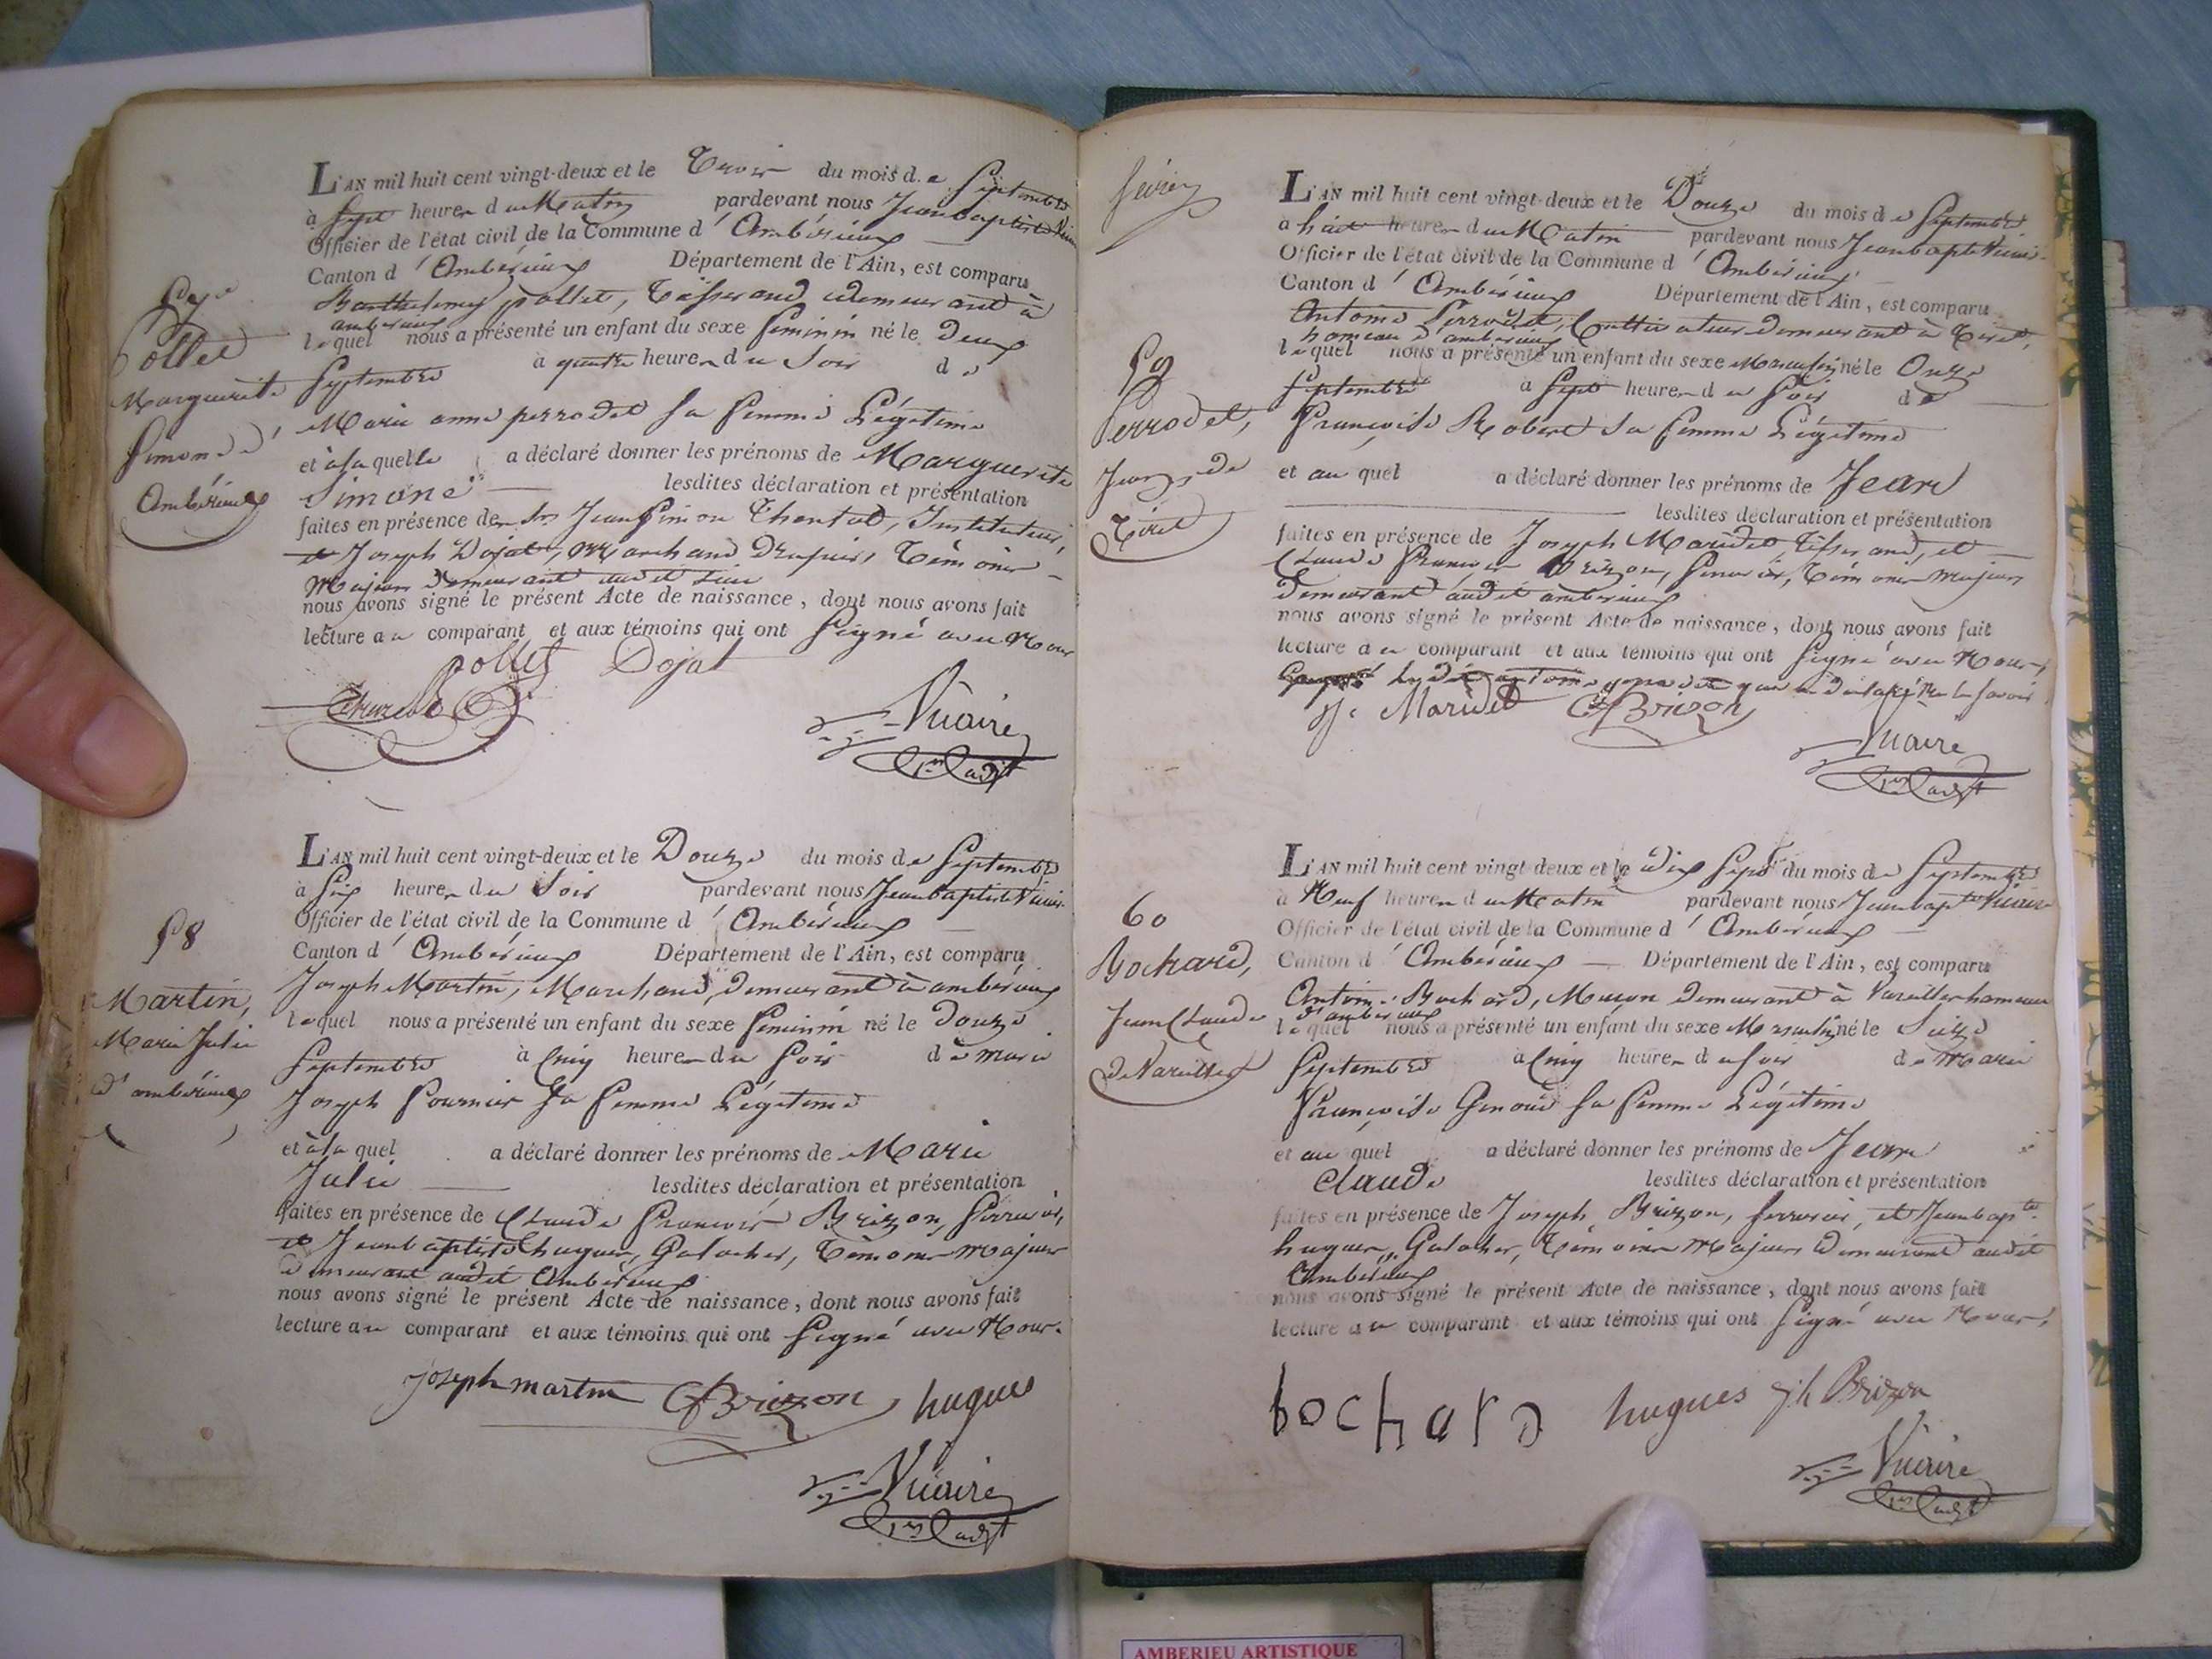 57e
Pollet
Marguerite
Simone d'
Ambérieux
L'AN mil huit cent vingt-deux et le Trois du mois de Septembre
à Sept heures du Matin pardevant nous Jean baptiste Vuaire
Officier de l'état civil de la Commune d'Ambérieux
Canton d'Ambérieux Département de l'Ain, est comparu
Barthelemy pollet, Tisserand, demeurant à
ambérieux
lequel nous a présenté un enfant du sexe feminin né le Deux
Septembre à quatre heures du Soir de
Marie anne perrodet sa femme Légitime
et à laquelle a déclaré donner les prénoms de Marguerite
Simone lesdites déclaration et présentation
faites en présence de Jean Simon, Instituteur,
et Joseph Dojat, Marchand Drapier, Témoins
Majeurs demeurant audit Lieu
nous avons signé le présent Acte de naissance, dont nous avons fait
lecture au comparant et aux témoins qui ont Signé avec Nous
pollet Dojat
Vuaire
1er adjt
58
Martin,
Marie Julie
d'ambérieux
L'AN mil huit cent vingt-deux et le Douze du mois de Septembre
à Six heures du Soir pardevant nous Jean baptiste Vuaire
Officier de l'état civil de la Commune d'Ambérieux
Canton d'Ambérieux Département de l'Ain, est comparu
Joseph Martin, Marchand, demeurant à ambérieux
lequel nous a présenté un enfant du sexe feminin né le Douze
Septembre à Cinq heures du Soir de marie
Joseph Fournier Sa femme Légitime
et à la quel a déclaré donner les prénoms de Marie
Julie lesdites déclaration et présentation
faites en présence de Claude François Brizon, Serrurier,
et Jean baptiste hugues, Galocher, Témoins Majeurs
demeurant audit Ambérieux
nous avons signé le présent Acte de naissance, dont nous avons fait
lecture au comparant et aux témoins qui ont Signé avec Nous.
joseph martin CfBrizon hugues
Vuaire
1er adjt
59
Perrodet,
Jean, de
Tiret
L'AN mil huit cent vingt-deux et le Douze du mois de Septembre
à huit heures du Matin pardevant nous Jean bapte Vuaire
Officier de l'état civil de la Commune d'Ambérieux
Canton d'Ambérieux Département de l'Ain, est comparu
Antoine Perrodet, Cultivateur demeurant à Tiret,
hameau d'ambérieux
lequel nous a présenté un enfant du sexe Masculin né le Onze
Septembre à Sept heures du Soir de
Françoise Robert sa femme Légitime
et au quel a déclaré donner les prénoms de Jean
lesdites déclaration et présentation
faites en présence de Joseph Maridet, Tisserand, et
Claude François Brizon, Serrurier, Témoins Majeurs
demeurant audit ambérieux
nous avons signé le présent Acte de naissance, dont nous avons fait
lecture au comparant et aux témoins qui ont Signé avec Nous,
ledit antoine perrodet qui a déclaré ne le Savoir
Je Maridet CfBrizon
Vuaire
1er adjt
60
Bochard,
Jean Claude
de Vareilles
L'AN mil huit cent vingt-deux et le dix Sept du mois de Septembre
à Neuf heures du Matin pardevant nous Jean bapte Vuaire
Officier de l'état civil de la Commune d'Ambérieux
Canton d'Ambérieux Département de l'Ain, est comparu
Antoine Bochard, Maçon demeurant à Vareilles hameau
d'ambérieux
lequel nous a présenté un enfant du sexe Masculin né le Seize
Septembre à Cinq heures du Soir de Marie
Françoise Genoud sa femme Légitime
et au quel a déclaré donner les prénoms de Jean
Claude lesdites déclaration et présentation
faites en présence de Joseph Brizon, serrurier, et Jean bapte
hugues, Galocher, Témoins Majeurs demeurant audit
Ambérieux
nous avons signé le présent Acte de naissance, dont nous avons fait
lecture au comparant et aux témoins qui ont Signé avec Nous,
bochard hugues jh Brizon
Vuaire
1er adjt
AMBERIEU ARTISTIQUE